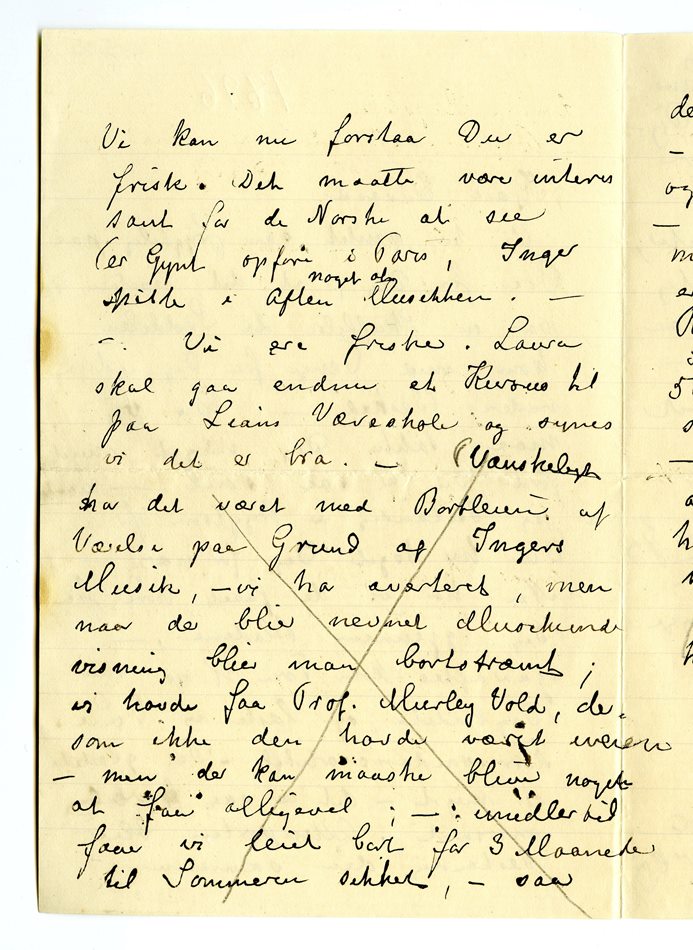 Vi kan nu forstaa Du er
frisk. Det maatte være interes
sant for de Norske at see
Per Gynt opført i Paris, Inger
spilte i Aften noget af Musikken. —
— Vi ere friske. Laura
skal gaa endnu et Kursus til
paa Væveskole og synes
vi det er bra. — (Vanskeligt
har det været med Bortleien af
Værelse paa Grund af Ingers
Musik, — vi ha averteret, men
naar der blir nevnet Musikunder
visning blir man bortskræmt;
vi havde faa Prof. Mourley Vold, der
som ikke den havde været iveien
— men der kan maaske blive noget
at faa alligevel; — imidlertid
faar vi leiet bort for 3 Maaneder
til Sommeren sikkert, — saa
de
—
og
—